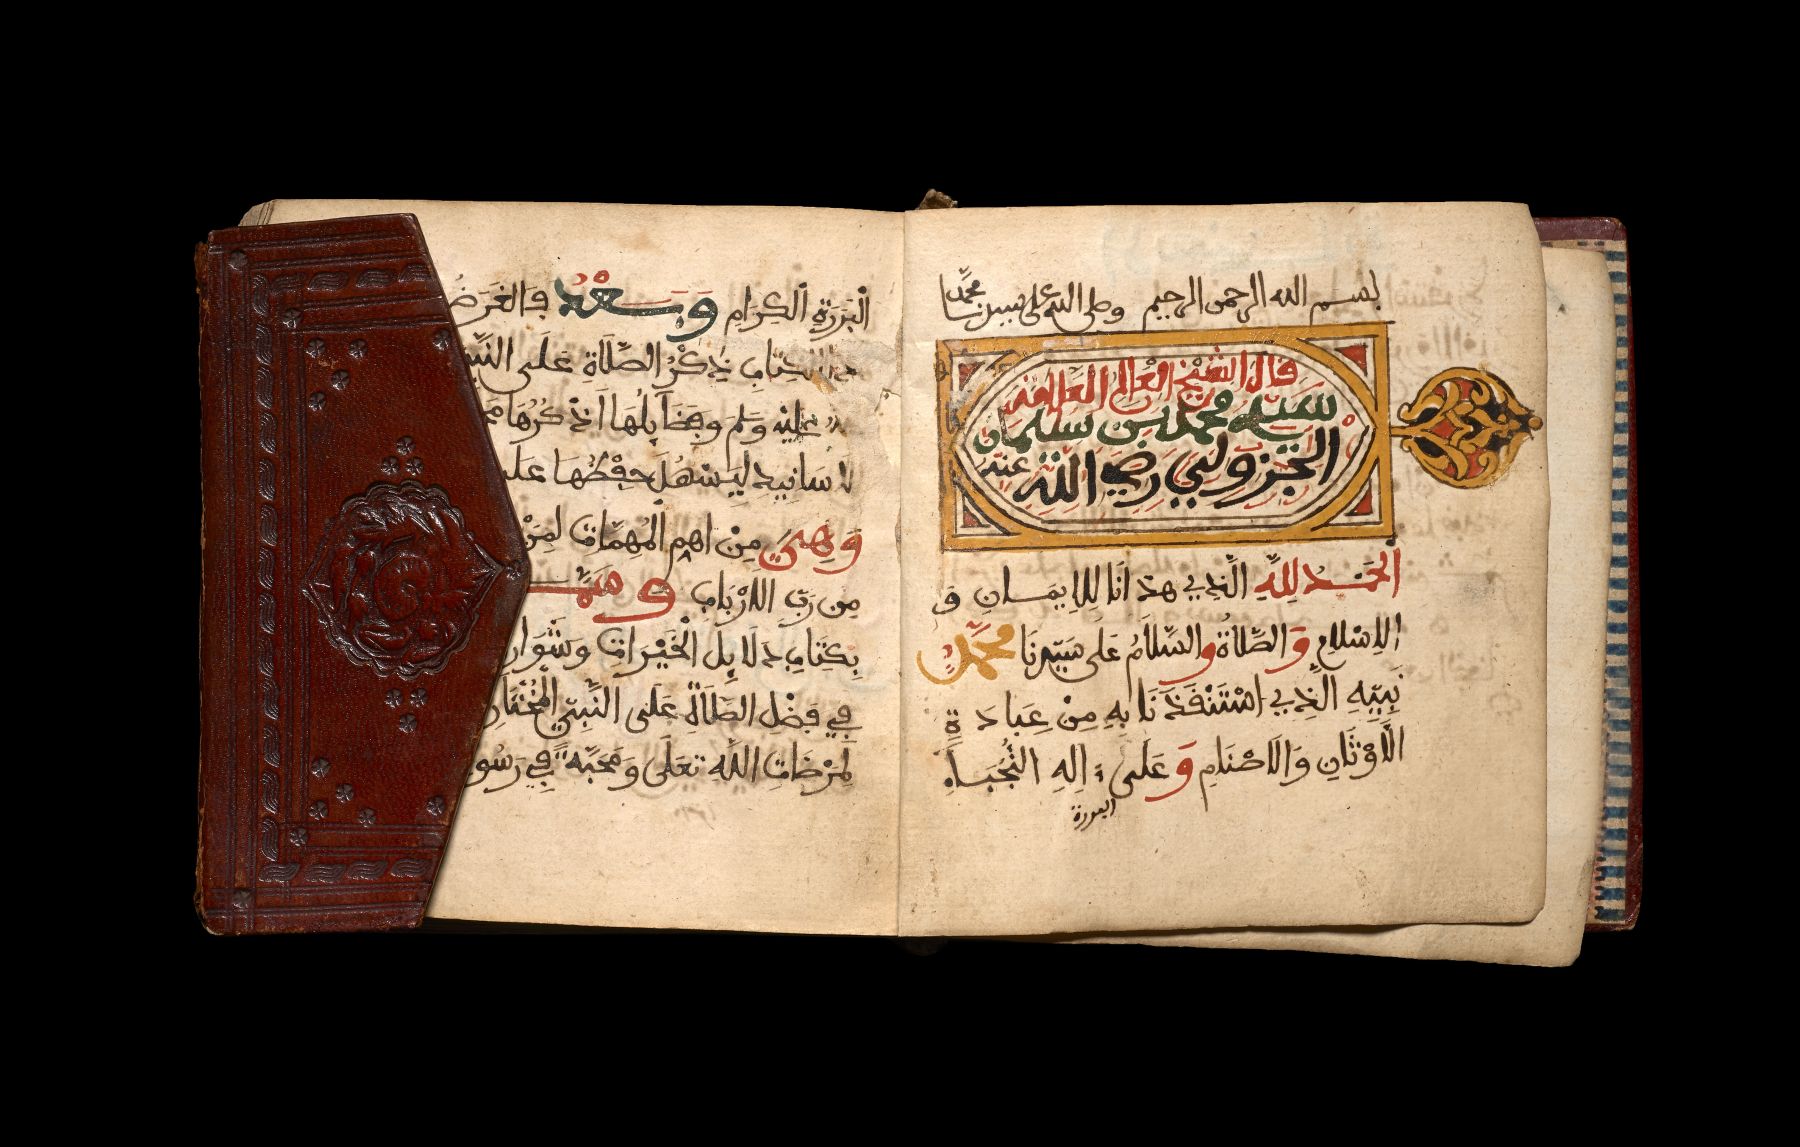 بسم الله الرحمن الرحيم وصلى الله على سيدنا محمد
قال الشيخ العالم العلامة
سيدي محمد بن سليمان
الجزولي رضي الله عنه
الحَمْدُ لِلَّهِ الَّذِي هَدَانَا لِلإِيمَانِ وَ
الإِسْلَامِ وَالصَّلَاةُ وَالسَّلَامُ عَلَى سَيِّدِنَا مُحَمَّدٍ
نَبِيِّهِ الَّذِي اسْتَنْقَذَنَا بِهِ مِنْ عِبَادَةِ
الْأَوْثَانِ وَالْأَصْنَامِ وَعَلَى ءَالِهِ النُّجَبَاءِ
البررة
الْبَرَرَةِ الْكِرَامِ وَبَعْدُ فَالْغَرَضُ
الكتاب ذِكْرُ الصَّلَاةِ عَلَى النَّبِيِّ
عليه وَسَلَّم وَفَضَائِلُهَا أَذْكُرُهَا
الأسانيدِ لِيَسْهُلَ حِفْظُهَا
وَهِيَ مِنْ أَهَمِّ الْمُهِمَّاتِ لِمَنْ
مِن رَبِّ الْأَرْبَابِ
بِكِتَابِ دَلَائِلِ الْخَيْرَاتِ وَشَوَارِ
فِي فَضْلِ الصَّلَاةِ عَلَى النَّبِيِّ الْمُخْتَارِ
لِمَرْضَاتِ اللَّهِ تَعَلَى وَمَحَبَّةً فِي رَسُو